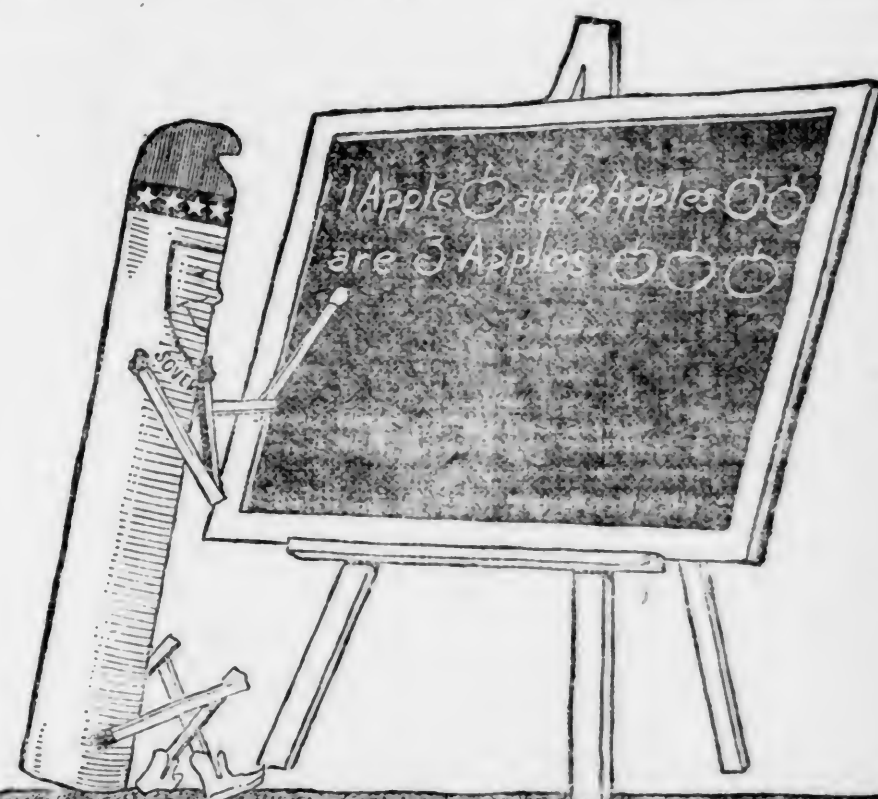 1 Apple and 2 Apples
are 3 Apples